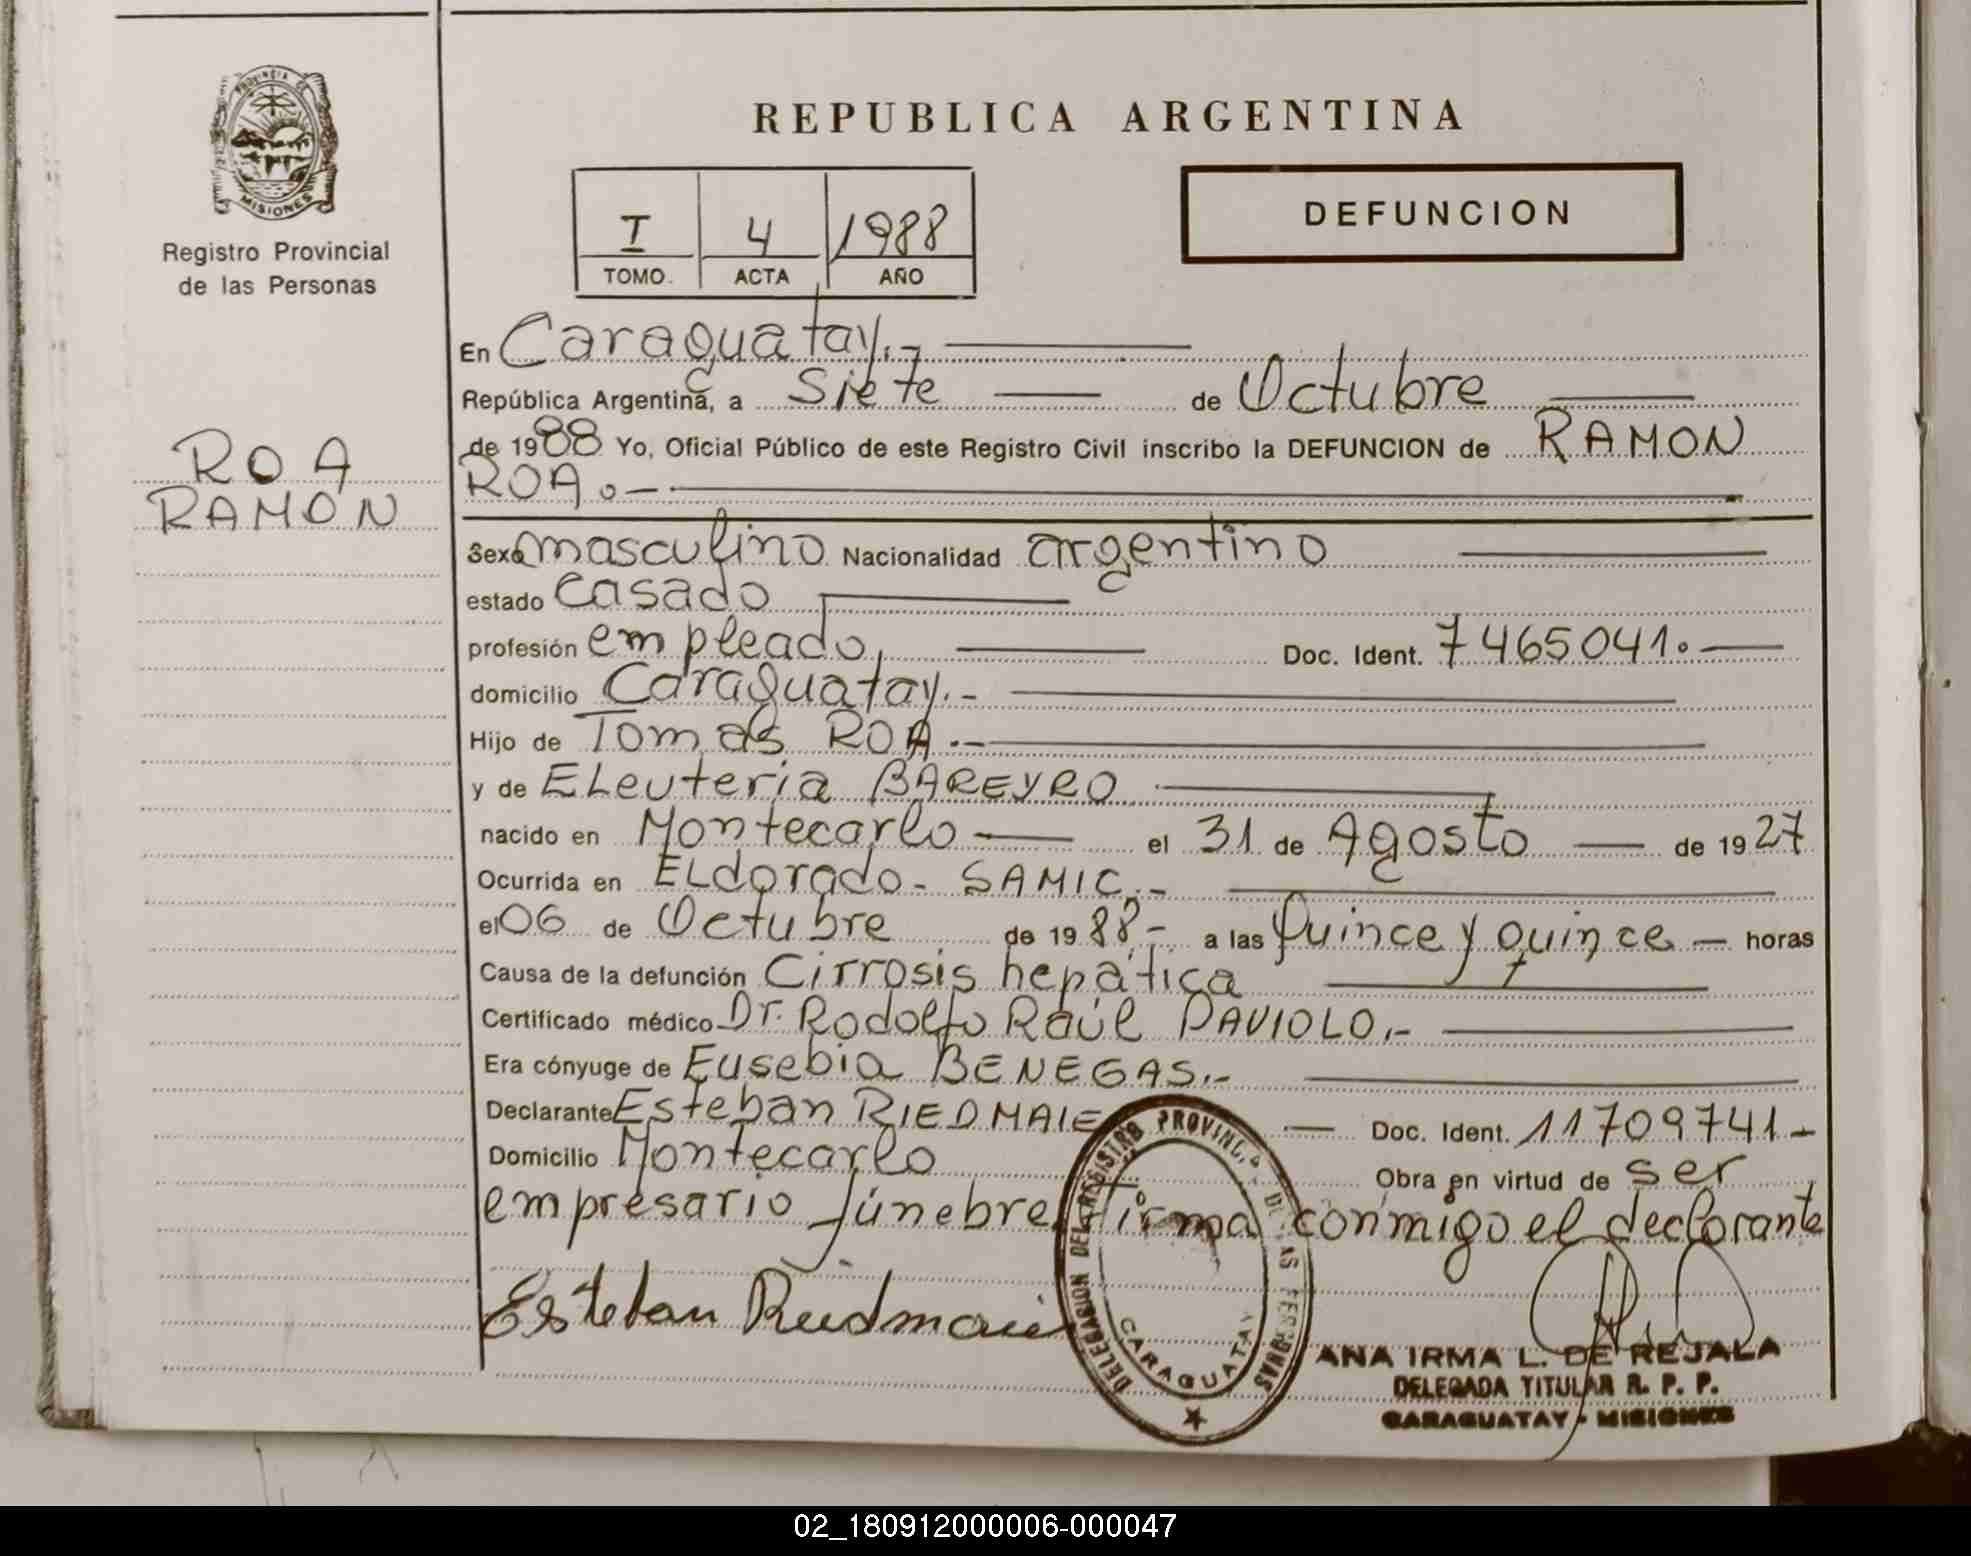 PROVINCIA DE
MISIONES
Registro Provincial
de las Personas
ROA
RAMON
REPUBLICA ARGENTINA
I 4 1988
TOMO. ACTA AÑO
DEFUNCION
En Caraguatay.-
República Argentina, a Siete de Octubre
de 1988 Yo, Oficial Público de este Registro Civil inscribo la DEFUNCION de RAMON
ROA.-
Sexo masculino Nacionalidad argentino
estado casado
profesión empleado, Doc. Ident. 7465041.-
domicilio Caraguatay.-
Hijo de Tomás ROA.-
y de Eleuteria BAREYRO
nacido en Montecarlo el 31 de Agosto de 1927
Ocurrida en ELdorado- SAMIC.-
el 06 de Octubre de 1988.- a las quince y quince - horas
Causa de la defunción Cirrosis hepática
Certificado médico Dr. Rodolfo Raúl PAVIOLO.-
Era cónyuge de Eusebia BENEGAS.-
Declarante Esteban RIEDMAIE Doc. Ident. 11709741-
Domicilio Montecarlo Obra en virtud de ser
empresario fúnebre. Firma conmigo el declarante
Esteban Riedmaier
DELEGACION DEL REGISTRO PROVINCIAL DE LAS PERSONAS
CARAGUATAY
ANA IRMA L. DE REJALA
DELEGADA TITULAR R. P. P.
CARAGUATAY - MISIONES
02_180912000006-000047